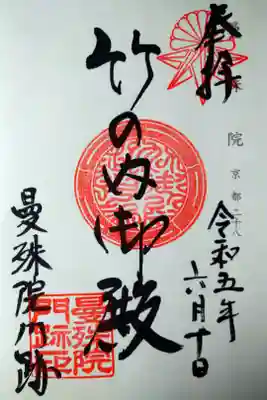 奉拝
院 京都二十八
令和五年
六月十日
竹の内御殿
曼殊院門跡
曼殊院
門跡印